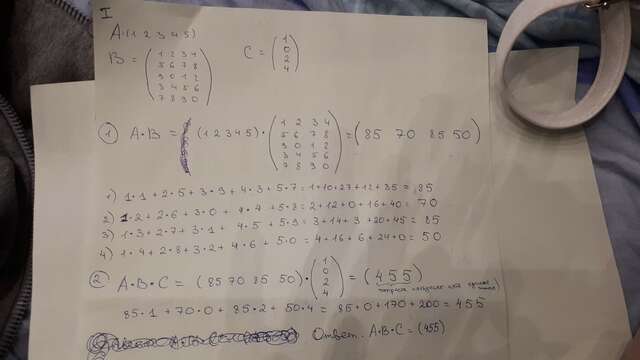 I
A=(1 2 3 4 5)
B = (1 2 3 4
5 6 7 8
9 0 1 2
3 4 5 6
7 8 9 0)
C = (1
0
2
4)
① A·B = (1 2 3 4 5) · (1 2 3 4
5 6 7 8
9 0 1 2
3 4 5 6
7 8 9 0) = (85 70 85 50)
1) 1·1 + 2·5 + 3·9 + 4·3 + 5·7 = 1+10+27+12+35 = 85
2) 1·2 + 2·6 + 3·0 + 4·4 + 5·8 = 2+12+0+16+40 = 70
3) 1·3 + 2·7 + 3·1 + 4·5 + 5·9 = 3+14+3+20+45 = 85
4) 1·4 + 2·8 + 3·2 + 4·6 + 5·0 = 4+16+6+24+0 = 50
② A·B·C = (85 70 85 50) · (1
0
2
4) = (455)
85·1 + 70·0 + 85·2 + 50·4 = 85+0+170+200 = 455
Ответ. A·B·C = (455)